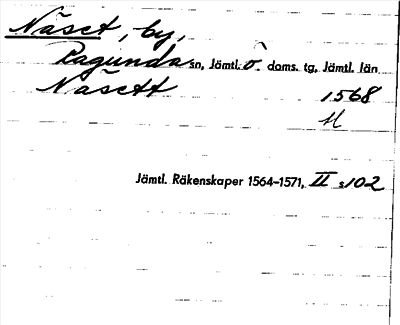 Näset, by,
Ragunda sn, Jämtl. ö. doms. tg, Jämtl. län
Näsett 1568
M
Jämtl. Räkenskaper 1564-1571, II s. 102